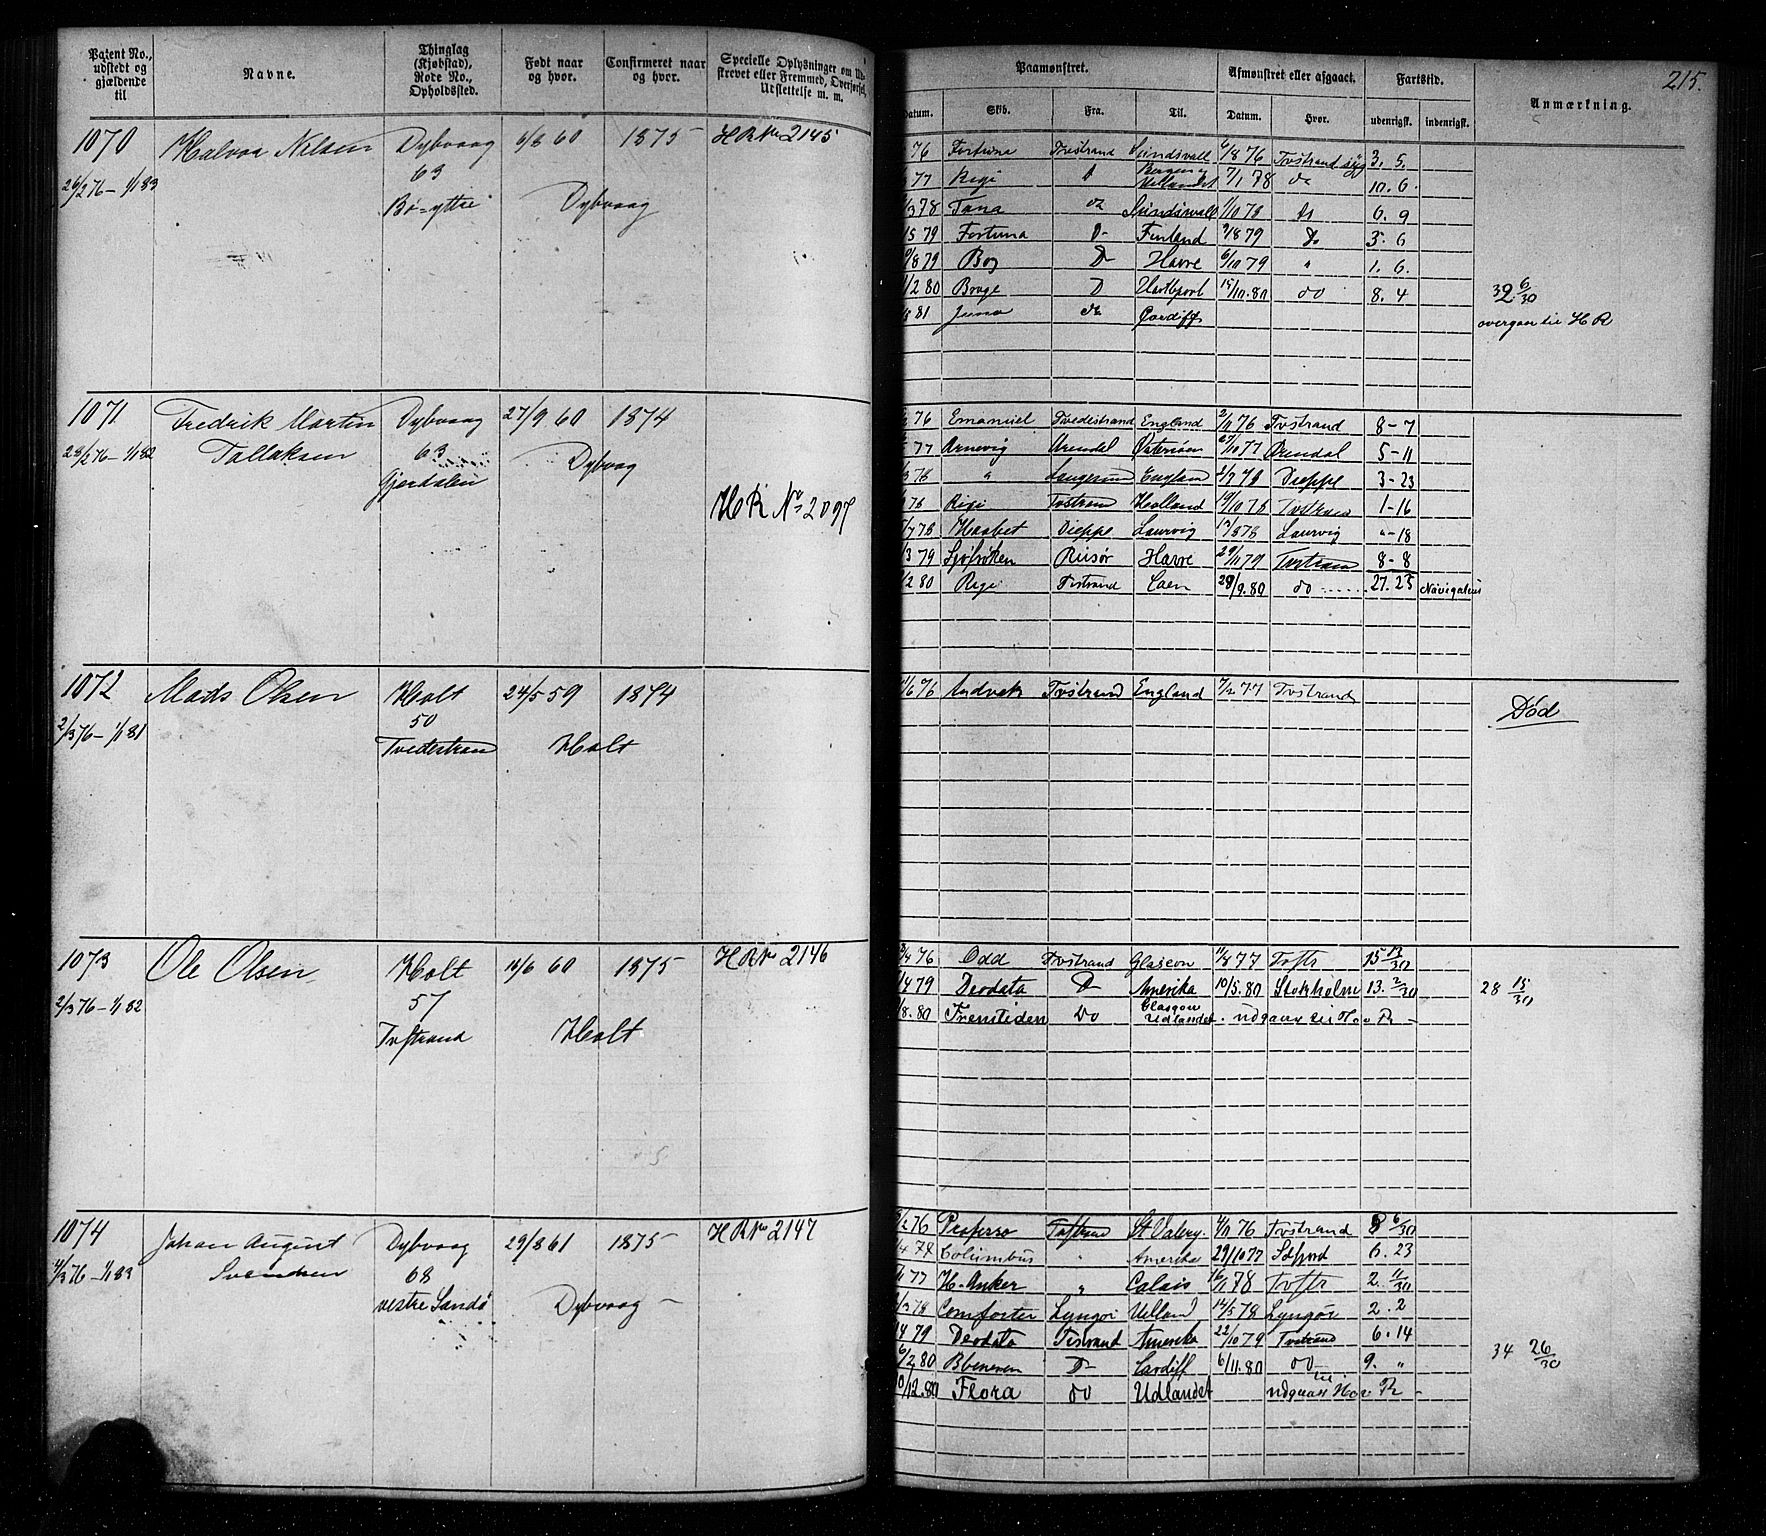 215.
Patent No., udstedt og gjældende til
Navne.
Thinglag (Kjøbstad), Rode No., Opholdssted.
Født naar og hvor.
Confirmeret naar og hvor.
Specielle Oplysninger om Udstrevet eller Fremmed, Overførsel, Udslettelse m. m.
Paamønstret.
Datum. Skib. Fra. Til.
Afmønstret eller afgaaet.
Datum. Hvor.
Fartstid.
udenrigsk. indenrigsk.
Anmærkning.
1070 Halvor Nilsen Dybvaag 6/8 60 1875 H R No 2145
26/2 76 – 1/1 83 63
Bø-yttre Dybvaag
76 Fortuna Tvedestrand Sundsvall 6/8 76 Tvstrand 3. 5.
77 Rigi D Bergen Udlandet 7/1 78 do 10. 6.
/3 78 Tana do Sundsvall 1/10 78 do 6. 9
/5 79 Fortuna D– Finland 9/8 79 Do 3. 6
/8 79 Bog D– Havre 6/10 79 " 1. 6.
/2 80 Brage D Hartlpool 15/10. 80 do 8. 4
81 Juno do Cardiff
32 6/30
overgaar til H R
1071 Fredrik Martin Dybvaag 27/9 60 1874
28/2 76 – 1/1 82 Tallaksen 63 Dybvaag
Gjerdalen
H R No 2097
76 Emanuel Tvedestrand England 2/11 76 Tvstrand 8 – 7
77 Arnevig Arendal Østersøen 27/10 77 Arendal 5 – 11
/3 78 " Langesund England 2/7 78 Dieppe 3 – 23
78 Rigi Tvstrand Holland 19/10 78 Tvstrand 1 – 16
/7 78 Haabet Dieppe Laurvig 13/8 78 Laurvig " – 18
/3 79 Sjøfrøken Risør Havre 29/11 79 Tvstrand 8 – 8
/2 80 Rigi Tvstrand Caen 28/9. 80 do 27. 25 Navigations
1072 Mads Olsen Holt 24/5 59 1874
2/3 76 – 1/1 81 50
Tvedestrand Holt
/6 76 Andvak Tvstrand England 7/2 77 Tvstrand
Død
1073 Ole Olsen Holt 10/6 60 1875 H R No 2146
2/3 76 – 1/1 82 57
Tvstrand Holt
/4 76 Odd Tvstrand Glascow 11/8 77 Tvstr 15 13/30
/4 79 Deodata D– Amerika 10/5. 80 Stokholm 13. 2/30
/8. 80 Fremtiden Do Glasgow Udlandet udgaar til Hov R –
28 15/30
1074 Johan August Dybvaag 29/8 61 1875 – H R No 2147
4/3 76 – 1/1 83 Svendsen 68
vestre Sandø Dybvaag –
/2 76 Professo Tvstrand St Valery. 4/11 76 Tvstrand 8 6/30
/4 77 Columbus " Amerika 29/10 77 6. 23
77 H. Anker " Calais 16/1 78 Tvstr 2. 11/30
/3 78 Comforter Lyngør Udland 14/5 78 Lyngør 2. 2
/4 79 Deodata Tvstrand Amerika 22/10 79 Tvstrand 6. 14
6/2 80 D– Cardiff 6/11. 80 do– 9. "
/12. 80 Flora do Udlandet udgaar til Hov R –
34 26/30